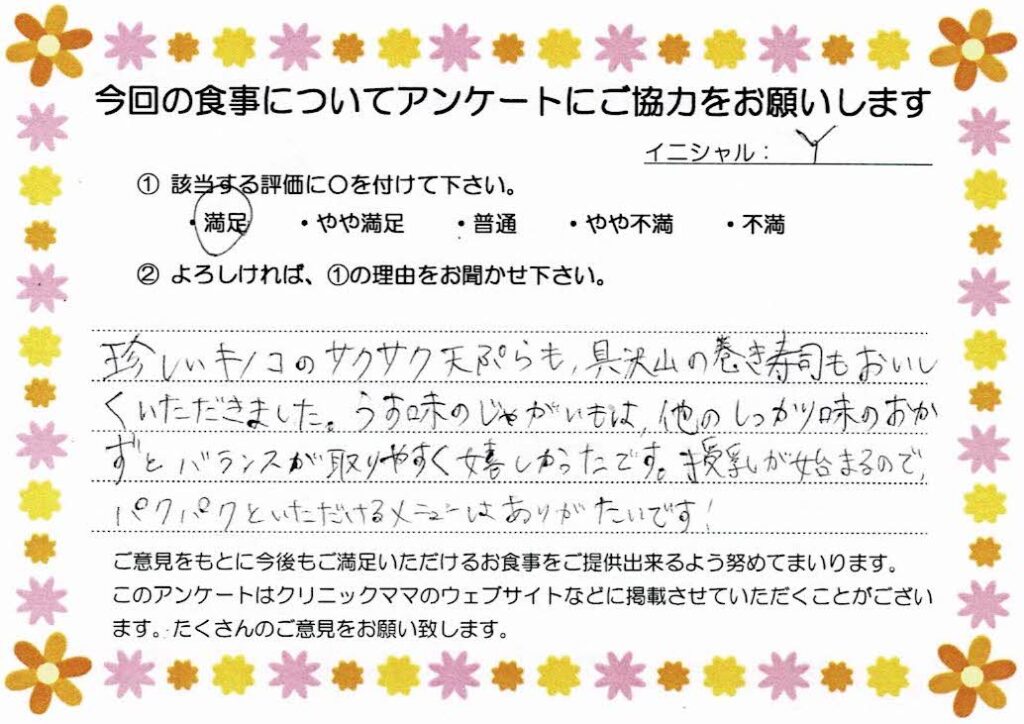 今回の食事についてアンケートにご協力をお願いします
イニシャル： Y
① 該当する評価に〇を付けて下さい。
・満足 ・やや満足 ・普通 ・やや不満 ・不満
② よろしければ、①の理由をお聞かせ下さい。
珍しいキノコのサクサク天ぷらも、具沢山の巻き寿司もおいし
くいただきました。うす味のじゃがいもは、他のしっかり味のおか
ずとバランスが取りやすく嬉しかったです。授乳が始まるので、
パクパクといただけるメニューはありがたいです！
ご意見をもとに今後もご満足いただけるお食事をご提供出来るよう努めてまいります。
このアンケートはクリニックママのウェブサイトなどに掲載させていただくことがござい
ます。たくさんのご意見をお願い致します。